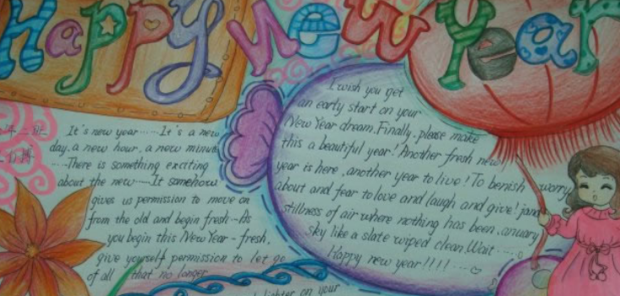 Happy New Year
It's new year ..... It's a new
day, a new hour, a new minute
.....There is something exciting
about the new — It somehow
gives us permission to move on
from the old and begin fresh - As
you begin this New Year - fresh,
give yourself permission to let go
of all that no longer
lighter on your
I wish you get
an early start on your
New Year dream. Finally, please make
this a beautiful year! Another fresh new
year is here, another year to live! To benish worry
about and fear to love and laugh and give! jand
stillness of air where nothing has been, anuary
sky like a slate wiped clean. Wait .....
Happy new year!!!!